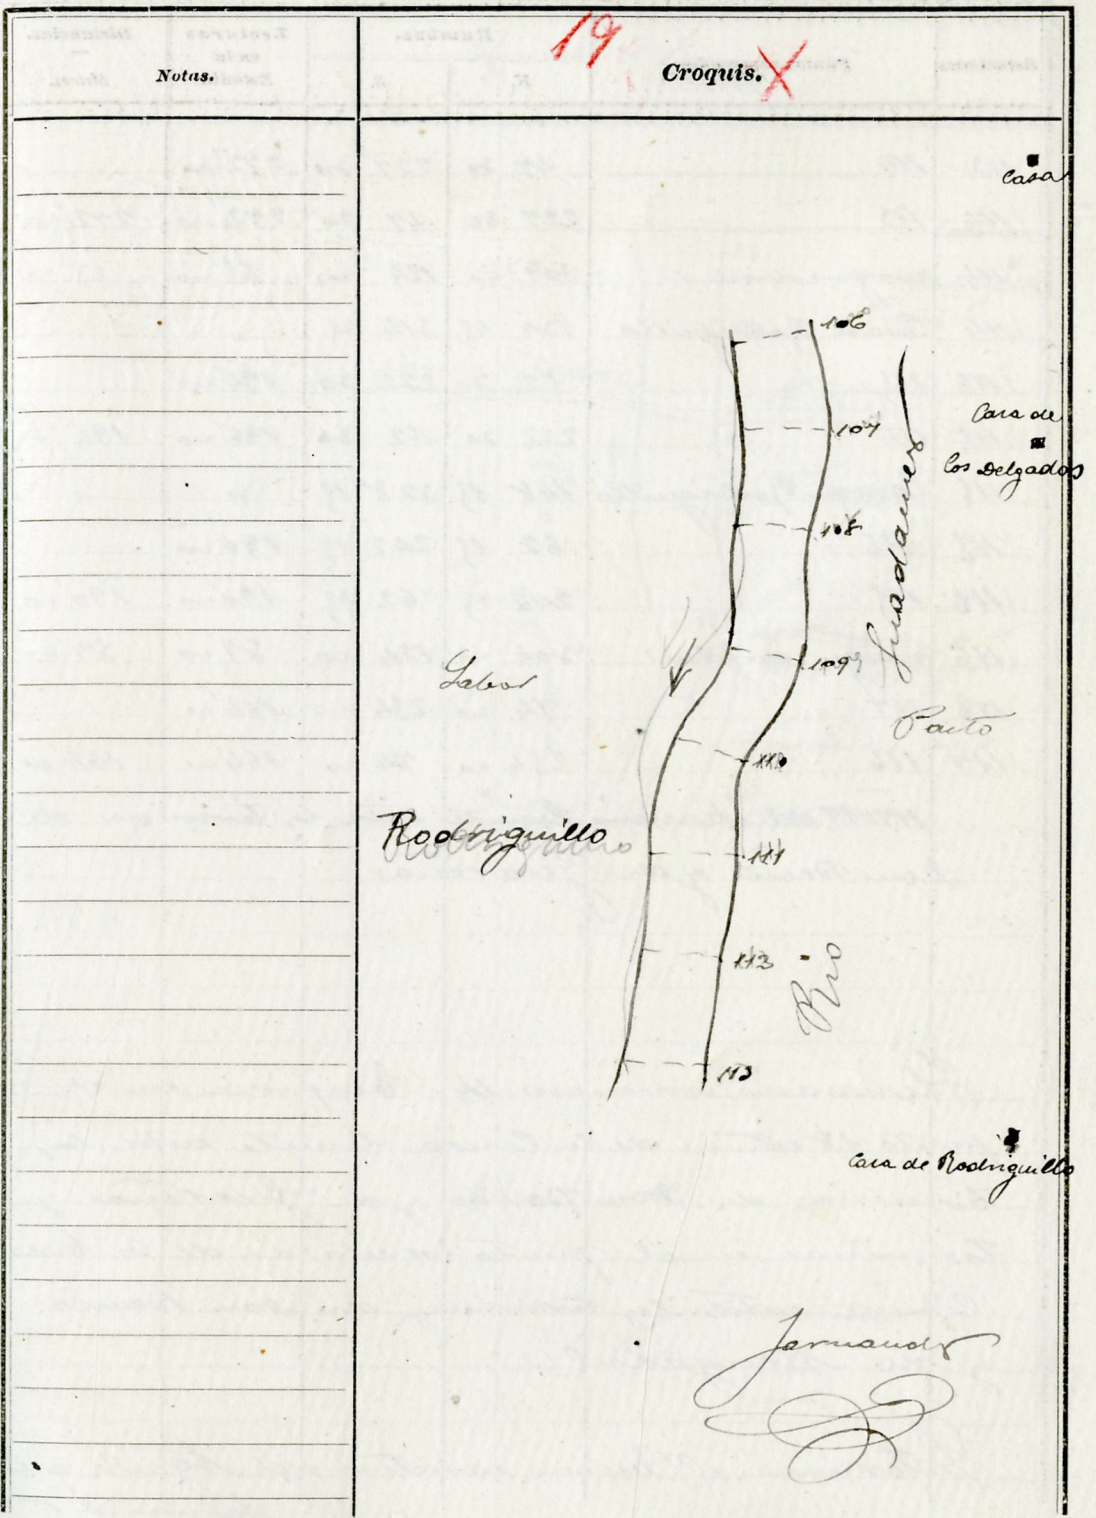 19
Notas.
Croquis. X
Casa
106
Casa de
107
los Delgados
108
Guadamez
109
Labor
Pasto
110
Rodriguillo
111
112
Rio
113
Casa de Rodriguillo